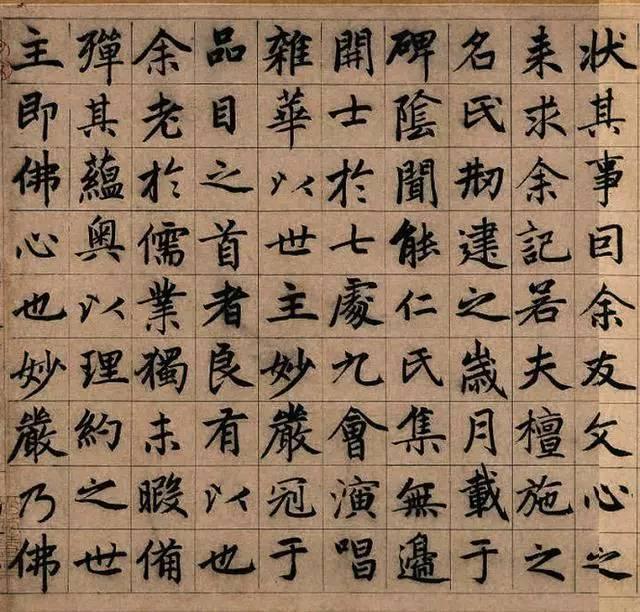 状其事囙余友文心之
来求余記若夫檀施之
名氏刱建之嵗月載于
碑陰聞能仁氏集無邊
開士於七處九會演唱
雜華以世主妙嚴冠于
品目之首者良有以也
余老於儒業獨未暇俻
殫其蘊奥以理約之世
主即佛心也妙嚴乃佛